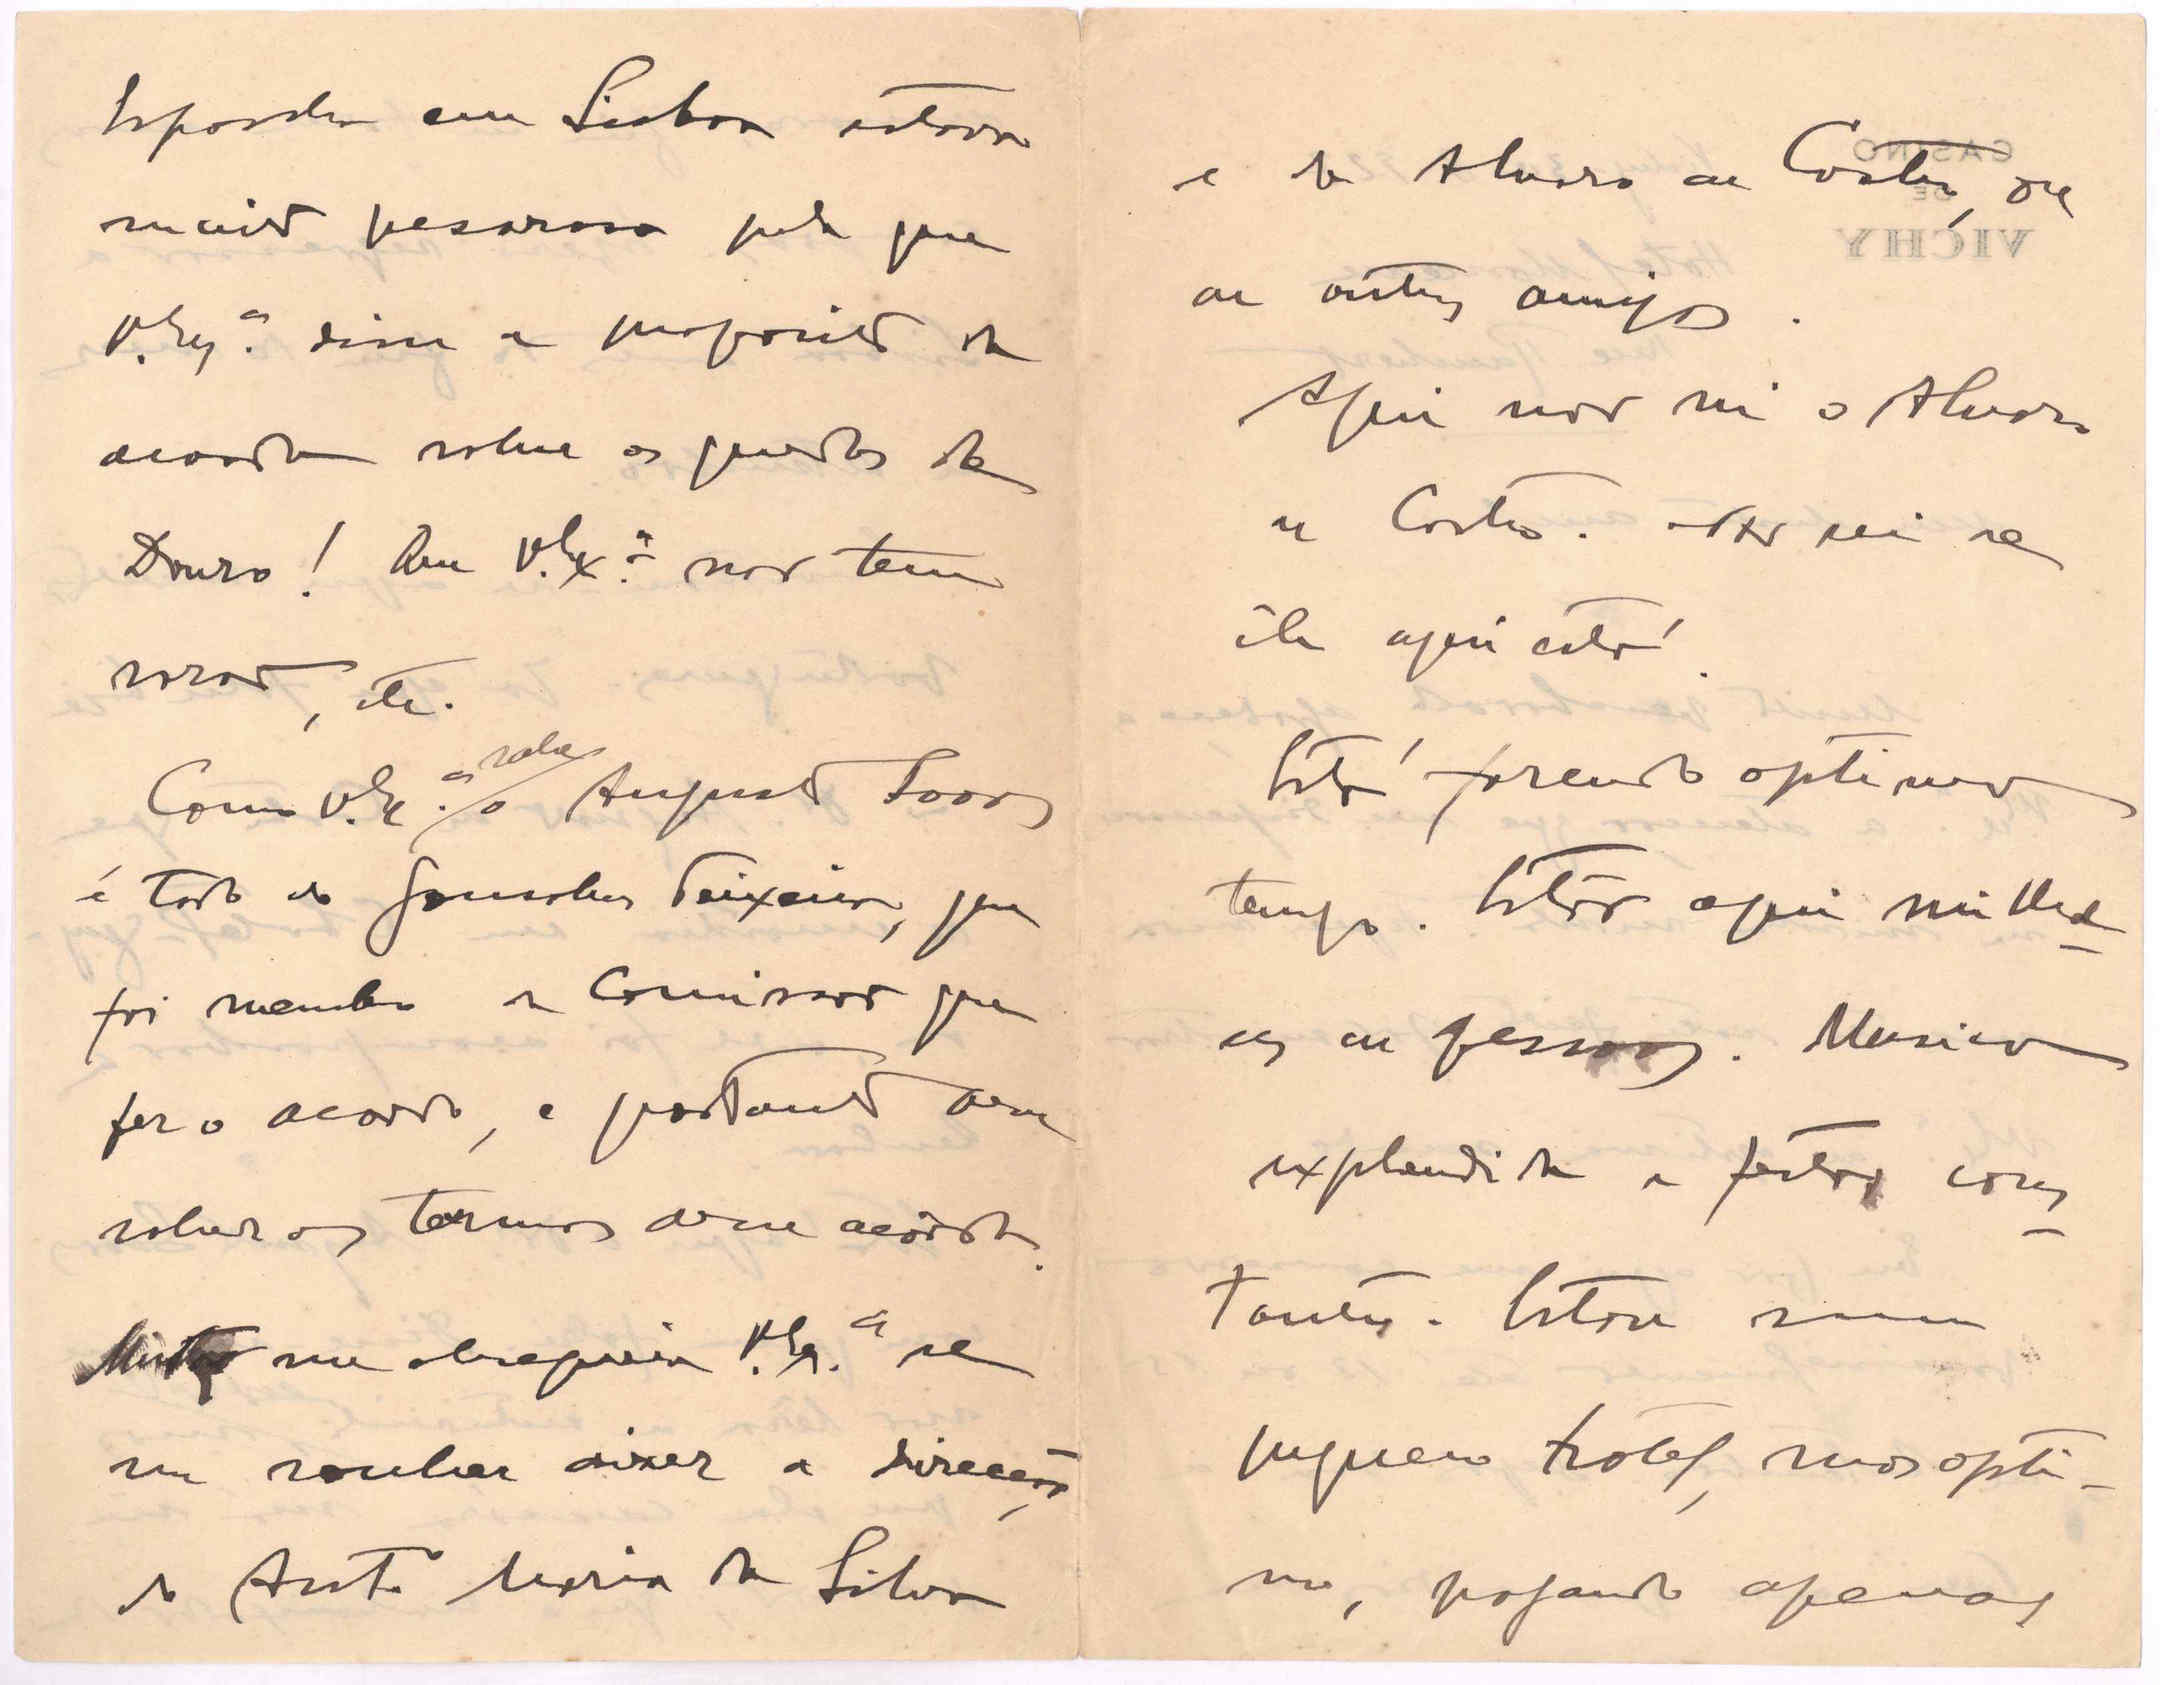 Espanha em Lisboa estava
muito pesaroso pelo que
V. Ex.ª disse a proposito do
acordo sobre as quedas do
Douro! Que V. Ex.ª não tem
razão, etc.
Como V. Ex.ª sabe o Augusto Soares
é todo do Gonsalves Teixeira, que
foi membro da Comissão que
fez o acordo, e portanto deve
saber os termos desse acôrdo.
Muito me obsequiaria V. Ex.ª se
me souber dizer a direcção
do Antº Maria da Silva
e do Alvaro de Castro, ou
de outros amigos.
Aqui não vi o Alvaro
de Castro. Não sei se
êle aqui está.
Está fazendo optimo
tempo. Estão aqui milha-
res de pessoas. Musica
explendida e festas cons-
tantes. Estou num
pequeno hotel, mas opti-
mo, pagando apenas
CASINO
DE
VICHY